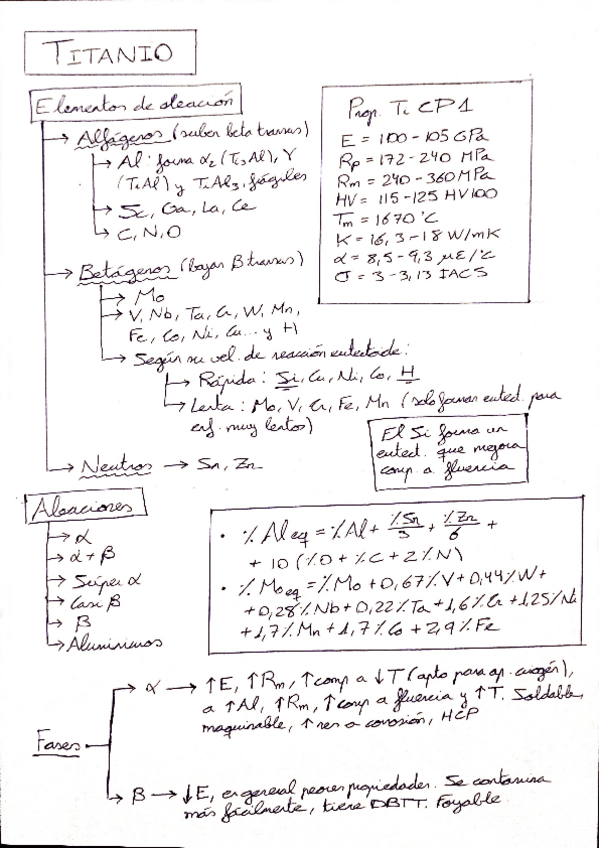 TITANIO
Elementos de aleación
→ Alfágenos (suben beta transus)
→ Al: forma α2 (Ti3Al), γ
(TiAl) y TiAl3, frágiles
→ Sc, Ga, La, Ce
→ C, N, O
→ Betágenos (bajan β transus)
→ Mo
→ V, Nb, Ta, Cr, W, Mn,
Fe, Co, Ni, Cu... y H
→ Según su vel. de reacción eutectoide:
→ Rápida: Si, Cu, Ni, Co, H
→ Lenta: Mo, V, Cr, Fe, Mn (solo forman eutect. para
enf. muy lentos)
→ Neutros → Sn, Zn
Prop. Ti CP1
E = 100 - 105 GPa
Rp = 172 - 240 MPa
Rm = 240 - 360 MPa
HV = 115 - 125 HV100
Tm = 1670 °C
K = 16,3 - 18 W/mK
α = 8,5 - 9,3 με/°C
σ = 3 - 3,13 IACS
El Si forma un
eutect. que mejora
comp. a fluencia
Aleaciones
→ α
→ α + β
→ Súper α
→ Casi β
→ β
→ Aluminuros
• % Al eq = % Al + % Sn/3 + % Zn/6 +
+ 10 (% O + % C + 2 % N)
• % Mo eq = % Mo + 0,67 % V + 0,44 % W +
+ 0,28 % Nb + 0,22 % Ta + 1,6 % Cr + 1,25 % Ni
+ 1,7 % Mn + 1,7 % Co + 2,9 % Fe
Fases
→ α → ↑E, ↑Rm, ↑comp a ↓T (apto para ap. criogén),
a ↑Al, ↑Rm, ↑comp a fluencia y ↑T. Soldable,
maquinable, ↑res a corrosión, HCP
→ β → ↓E, en general peores propiedades. Se contamina
más fácilmente, tiene DBTT. Forjable.